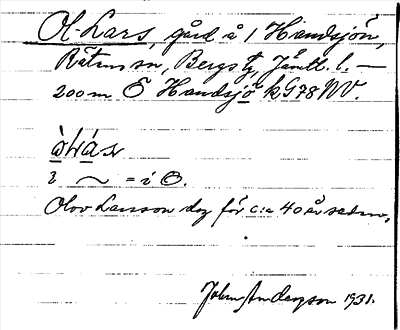 Ol-Lars, gård å 1 Handsjön,
Rätans sn, Bergs tg, Jämtl. l. —
200 m Ö Handsjö kG78NV.
i ~ = i
Olov Larsson dog för c:a 40 år sedan,
John Anderzson 1931.